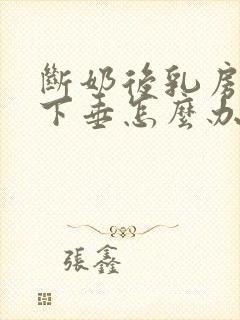 斷奶後乳房
下垂怎麼办
張鑫